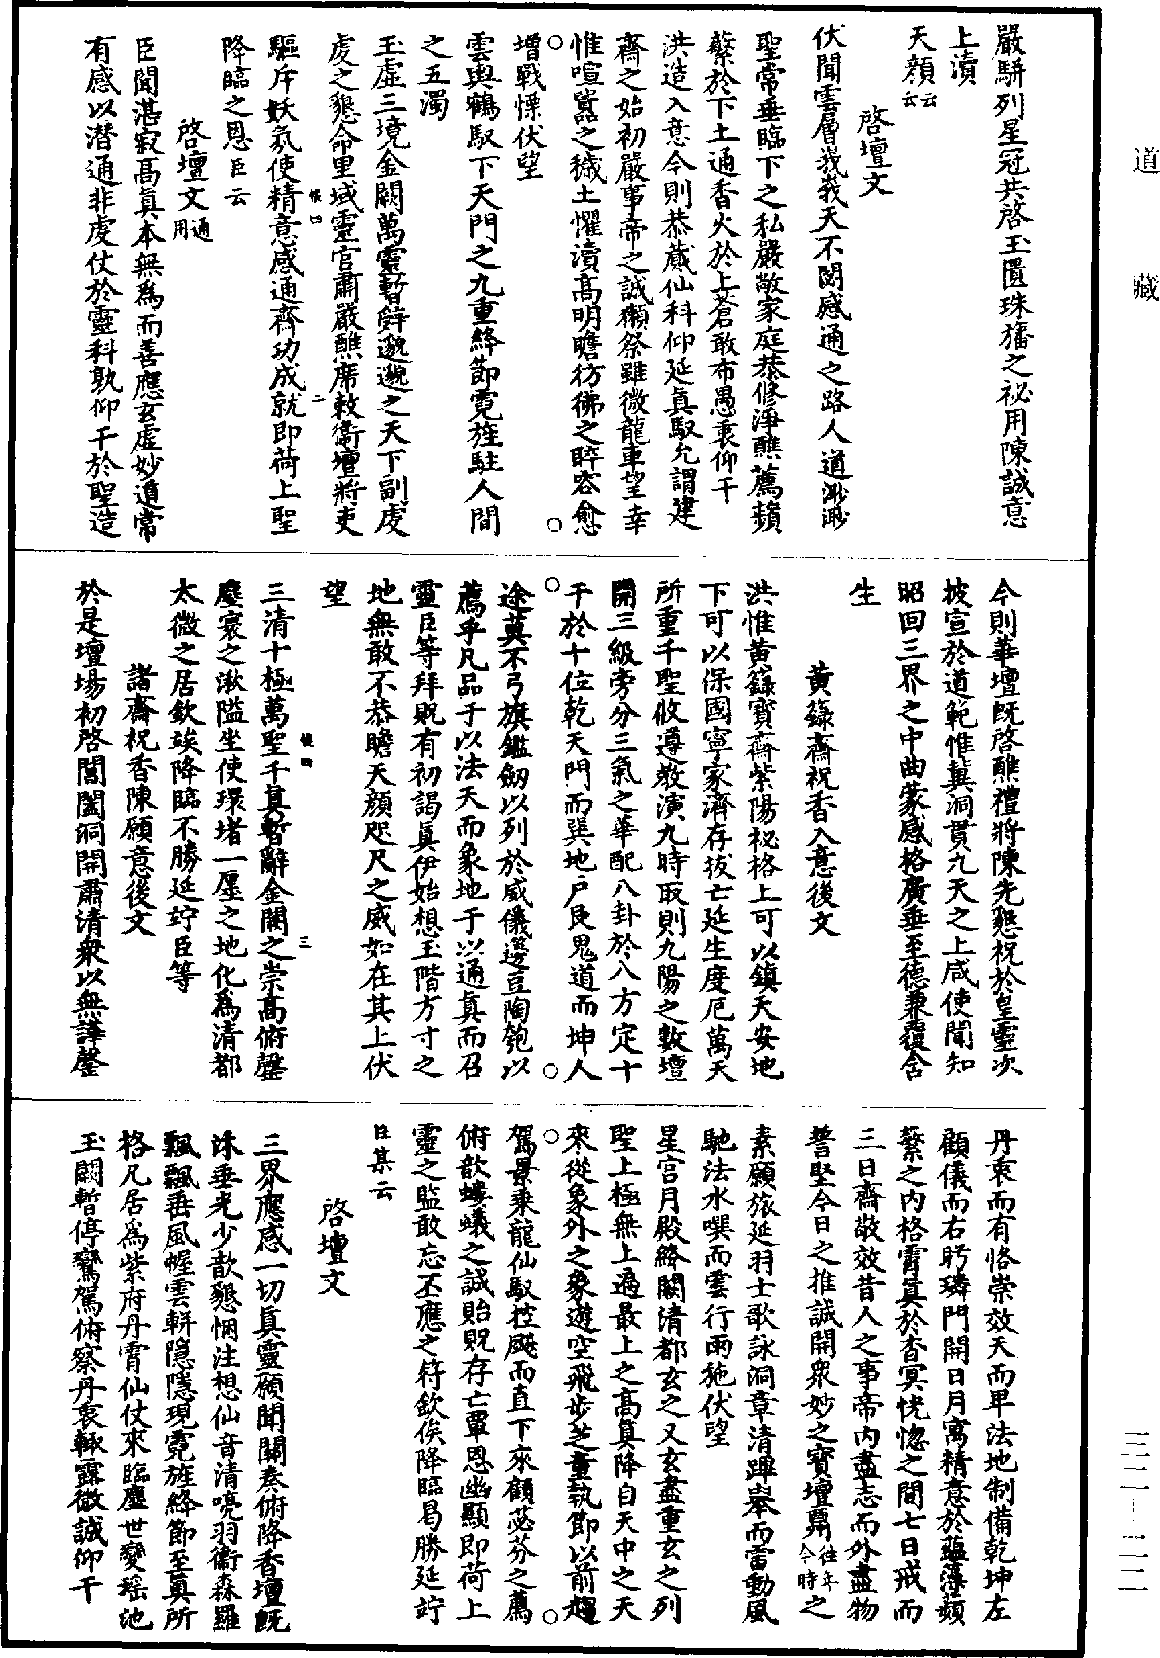 道藏
嚴駢列星冠共啓玉匱珠旛之祕用陳誠意
上瀆
天顔云云
啓壇文
伏聞雲層峩峩天不閡感通之路人道渺渺
聖常垂臨下之私嚴敞家庭恭修淨醮薦蘋
蘩於下土通香火於上蒼敢布愚衷仰干
洪造入意今則恭蕆仙科仰延眞馭允謂建
齋之始初嚴事帝之誠獺祭雖微龍車望幸
惟喧囂之穢土懼瀆高明瞻彷彿之睟容愈
增戰慄伏望
雲輿鶴馭下天門之九重絳節霓旌駐人間
之五濁
玉虛三境金闕萬靈暫辭邈邈之天下副虔
虔之懇命里域靈官肅嚴醮席敕衞壇將吏
驅斥妖氛使精意感通齋功成就即荷上聖
降臨之恩臣云
啓壇文通用
臣聞湛寂高眞本無爲而善應玄虛妙道常
有感以潛通非虔仗於靈科孰仰干於聖造
今則華壇旣啓醮禮將陳先懇祝於皇靈次
披宣於道範惟冀洞貫九天之上咸使聞知
昭回三界之中曲蒙感格廣垂至德兼覆含
生
黃籙齋祝香入意後文
洪惟黃籙寶齋紫陽祕格上可以鎮天安地
下可以保國寧家濟存拔亡延生度厄萬天
所重千聖攸遵敎演九時取則九陽之數壇
開三級旁分三氣之華配八卦於八方定十
干於十位乾天門而巽地戶艮鬼道而坤人
途蓂不弓旗鑑劒以列於威儀籩豆陶匏以
薦乎凡品于以法天而象地于以通眞而召
靈臣等拜貺有初謁眞伊始想玉階方寸之
地無敢不恭瞻天顔咫尺之威如在其上伏
望
三清十極萬聖千眞暫辭金闕之崇高俯罄
塵寰之湫隘坐使環堵一廛之地化爲清都
太微之居欽竢降臨不勝延竚臣等
諸齋祝香陳願意後文
於是壇場初啓閶闔洞開肅清衆以無譁罄
丹衷而有恪崇效天而卑法地制備乾坤左
顧儀而右眄璘門開日月寓精意於蘊藻蘋
蘩之內格霄眞於杳冥恍惚之間七日戒而
三日齋敬效昔人之事帝內盡志而外盡物
誓堅今日之推誠開衆妙之寶壇羃往年今時之
素願旅延羽士歌詠洞章清蹕舉而雷動風
馳法水噀而雲行雨施伏望
星宮月殿絳闕清都玄之又玄盡重玄之列
聖上極無上遍最上之高眞降自天中之天
來從象外之象遊空飛步芝童執節以前趨
駕景乘龍仙馭控飈而直下來顧苾芬之薦
俯歆螻蟻之誠貽貺存亡覃恩幽顯即荷上
靈之監敢忘丕應之符欽俟降臨曷勝延竚
臣某云
啓壇文
三界應感一切眞靈願聞關奏俯降香壇旣
誅垂光少歆懇悃注想仙音清喨羽衞森羅
飄飄垂風幄雲軿隱隱現霓旌絳節至眞所
格凡居爲紫府丹霄仙仗來臨塵世變瑶池
玉闕暫停鸞駕俯察丹衷輙露微誠仰干